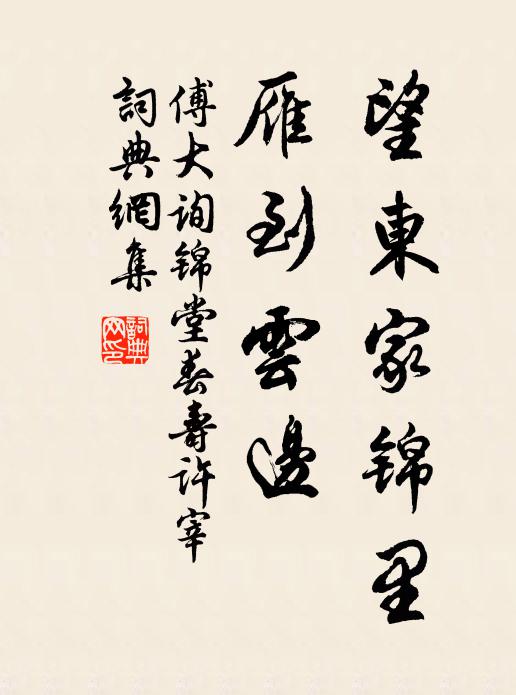 望東家錦里
雁到雲邊
傅大询錦堂春壽许宰
詞典網集
詞典网印